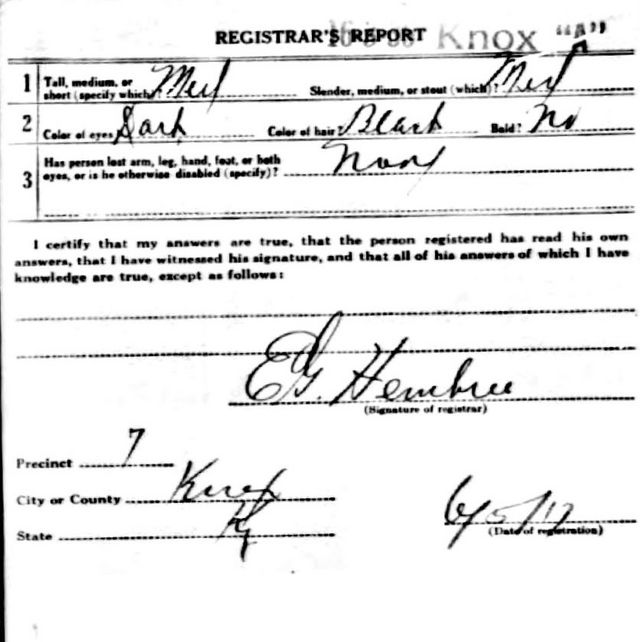 REGISTRAR'S REPORT Knox "A"
1 Tall, medium, or short (specify which)? Med Slender, medium, or stout (which)? Med
2 Color of eyes Dark Color of hair Black Bald? No
3 Has person lost arm, leg, hand, foot, or both eyes, or is he otherwise disabled (specify)? None
I certify that my answers are true, that the person registered has read his own
answers, that I have witnessed his signature, and that all of his answers of which I have
knowledge are true, except as follows:
E.G. Hembree
(Signature of registrar)
Precinct 7
City or County Knox
State Ky
6/5/17
(Date of registration)